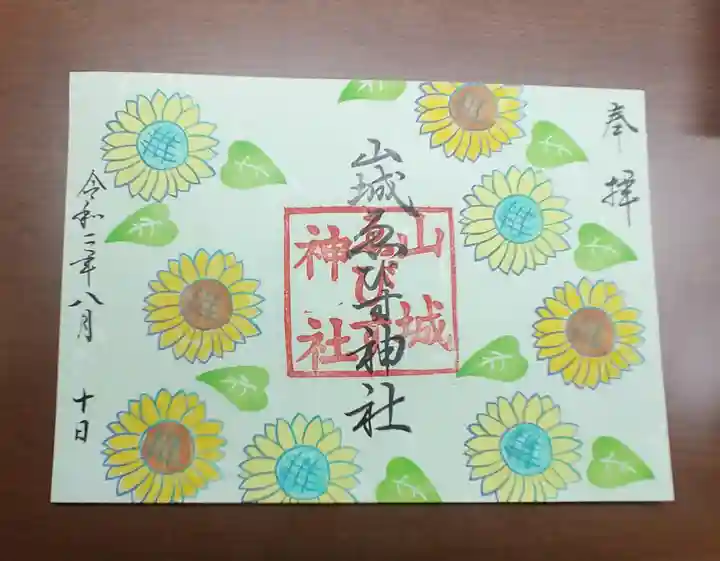 奉拝
山城ゑびす神社
山城
ゑびす
神社
令和二年八月十日